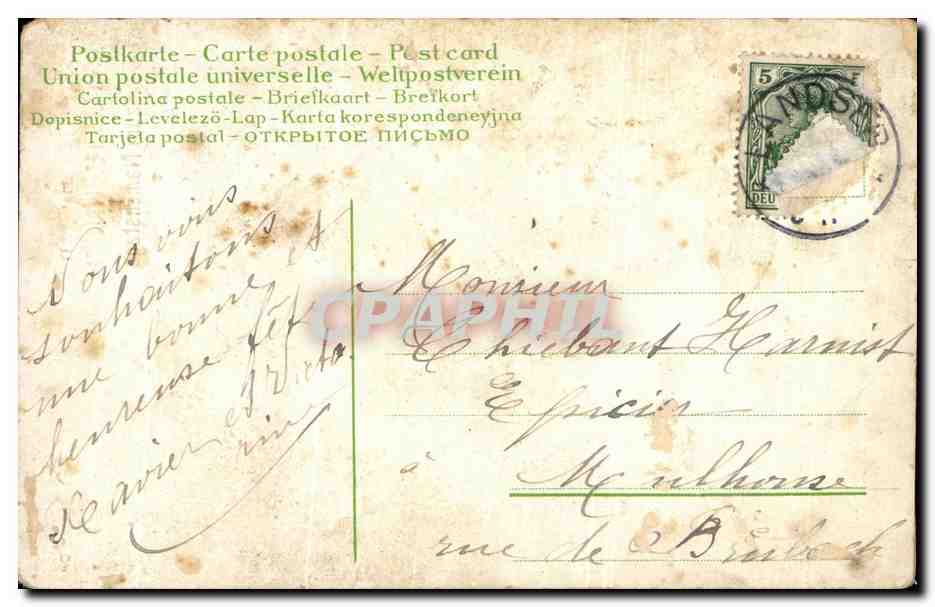 Postkarte – Carte postale – Post card
Union postale universelle – Weltpostverein
Cartolina postale – Briefkaart – Brefkort
Dopisnice – Levelező-Lap – Karta korespondencyjna
Tarjeta postal – ОТКРЫТОЕ ПИСЬМО
5
DEU
LANDS
Nous vous
souhaitons
une bonne et
heureuse fêt
Xavier et Victo
rine
CPAPHIL
Monsieur
Thiebaut Harnist
Epicier
à Mulhouse
rue de Brubach